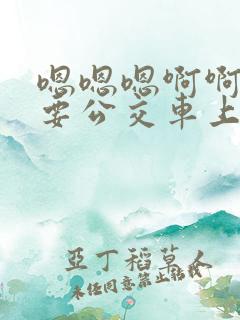 嗯嗯嗯啊啊
要公交车上
亚丁稻草人
未经同意禁止转载